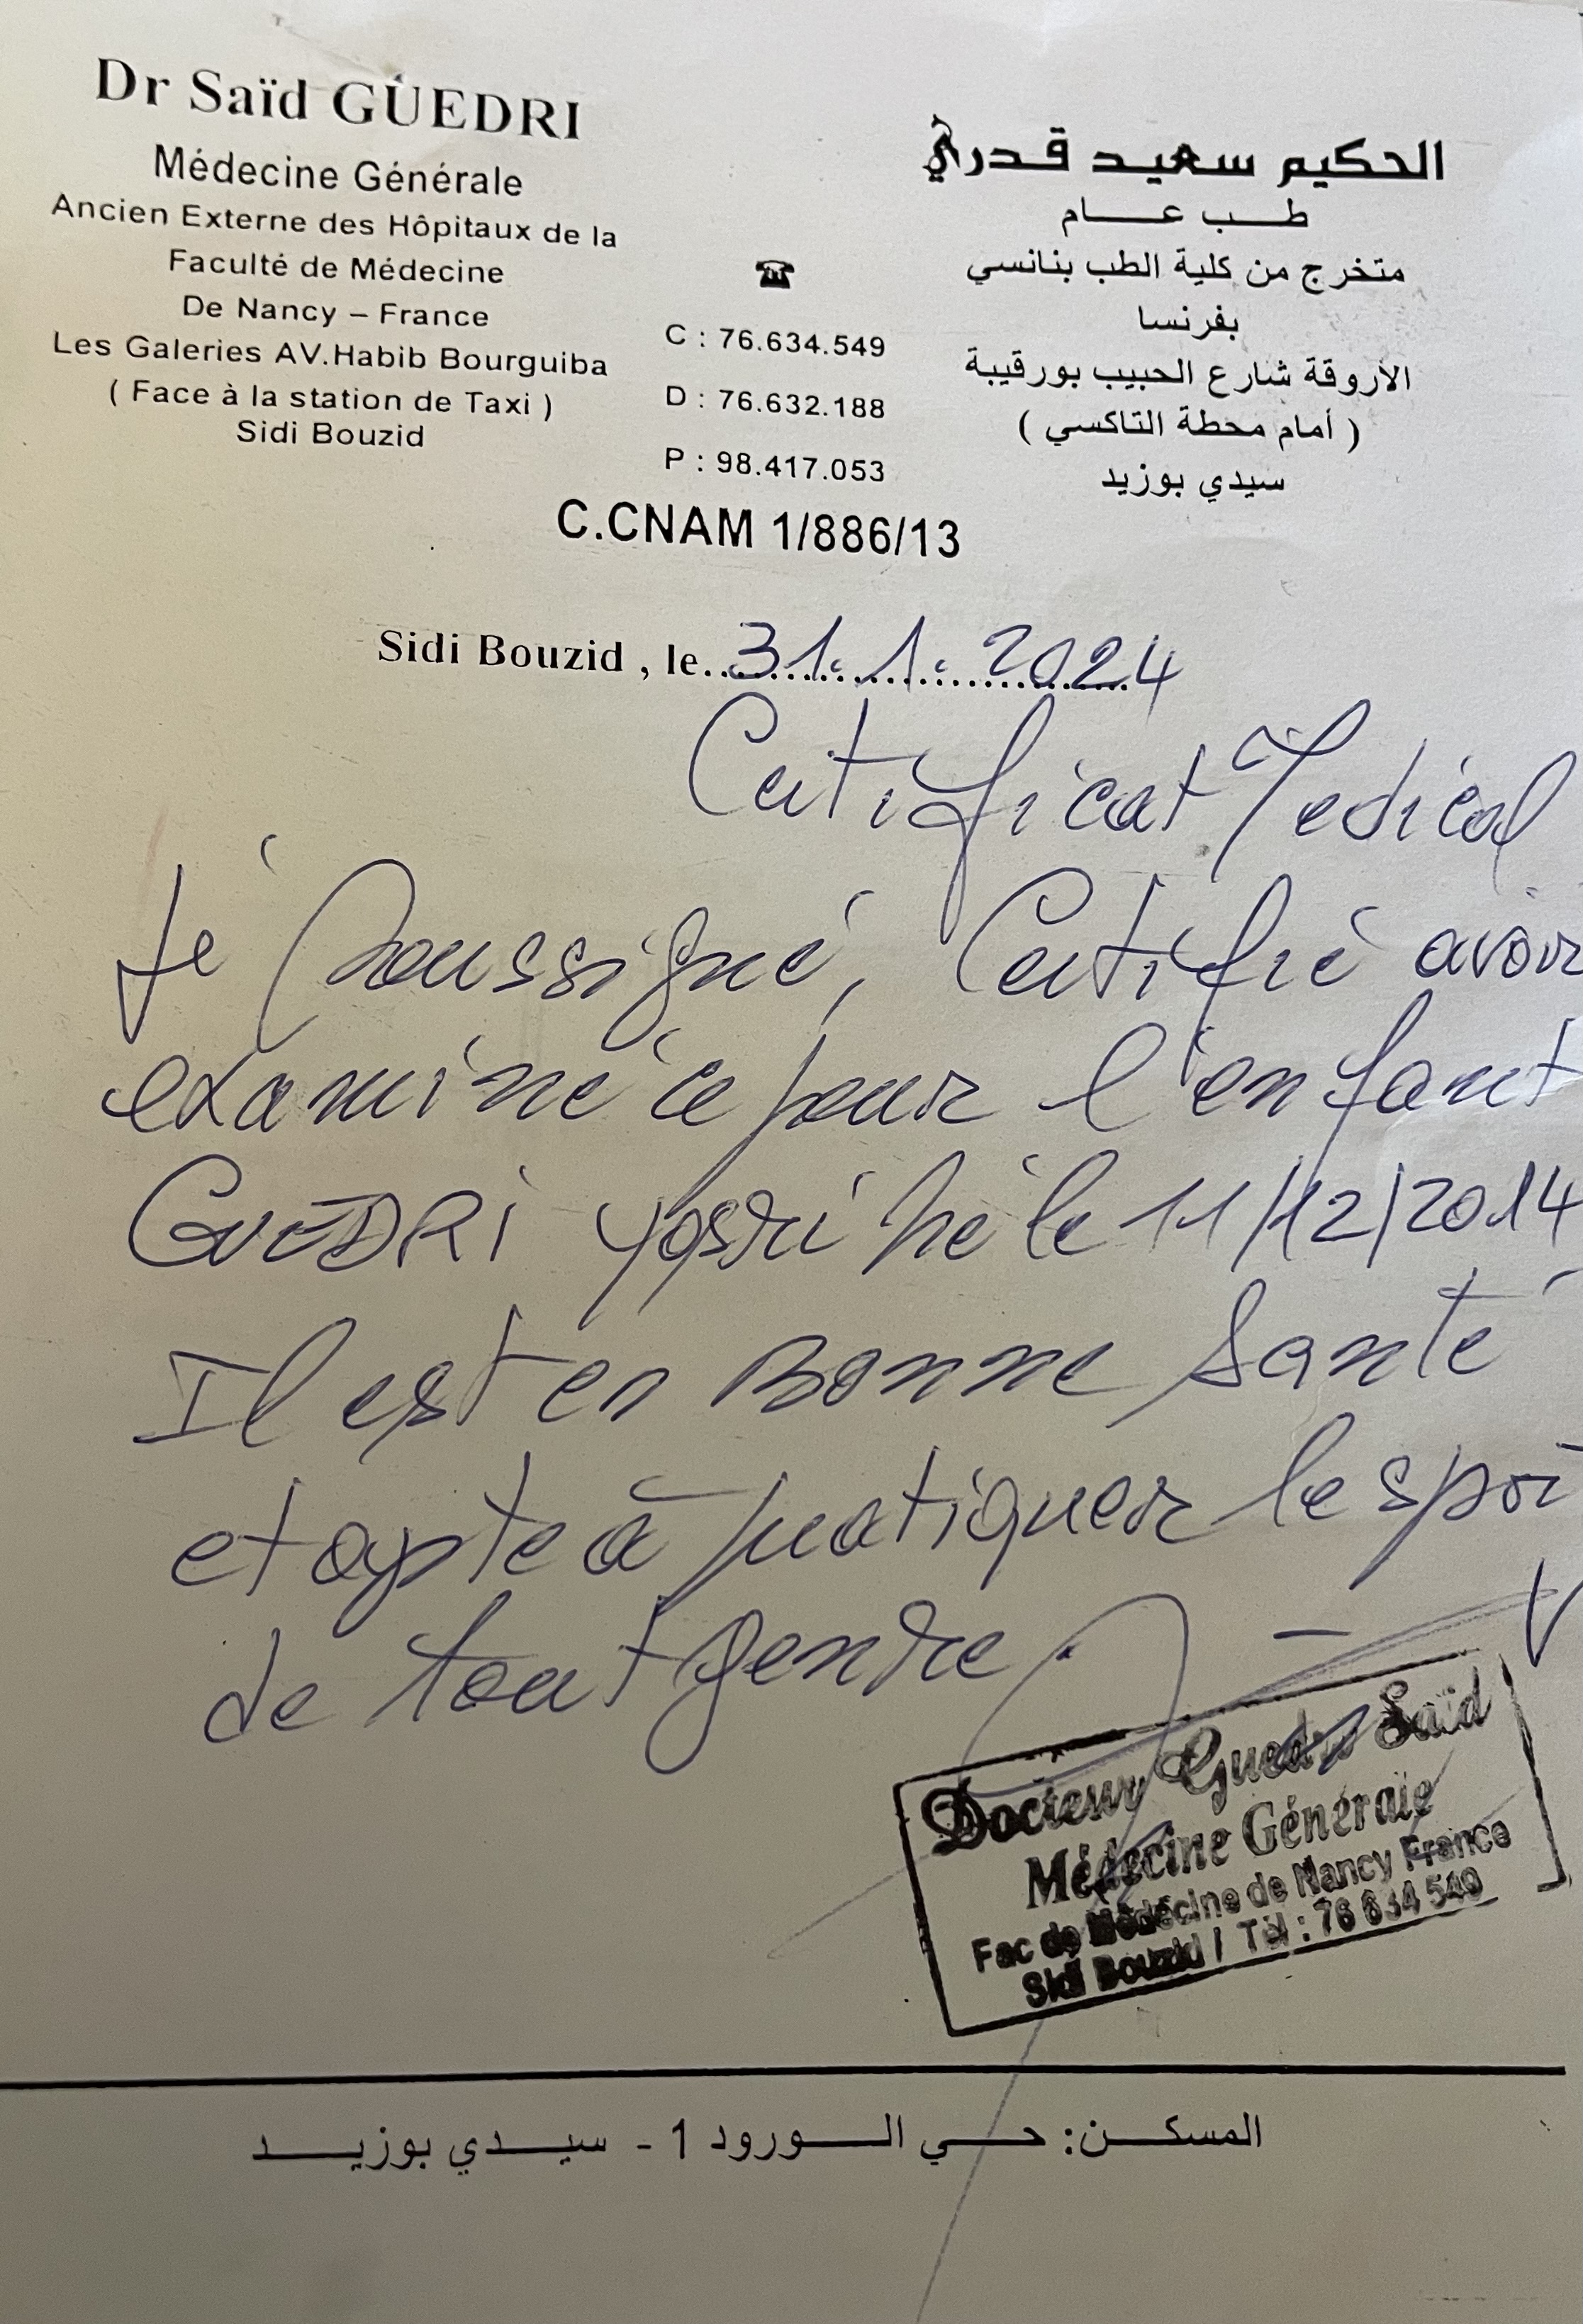 Dr Saïd GUEDRI
Médecine Générale
Ancien Externe des Hôpitaux de la
Faculté de Médecine
De Nancy – France
Les Galeries AV.Habib Bourguiba
( Face à la station de Taxi )
Sidi Bouzid
☎
C : 76.634.549
D : 76.632.188
P : 98.417.053
الحكيم سعيد قدري
طب عام
متخرج من كلية الطب بنانسي
بفرنسا
الأروقة شارع الحبيب بورقيبة
( أمام محطة التاكسي )
سيدي بوزيد
C.CNAM 1/886/13
Sidi Bouzid , le 31.1.2024
Certificat Medical
Je soussigné, Certifie avoir
examiné ce jour l'enfant
GUEDRI Yosri né le 11/12/2014
Il est en Bonne santé
et apte à pratiquer le spor
de tout genre . –
Docteur Guedri Saïd
Médecine Générale
Fac de Médécine de Nancy France
Sidi Bouzid / Tél : 76 634 549
المسكن: حي الورود 1 - سيدي بوزيد